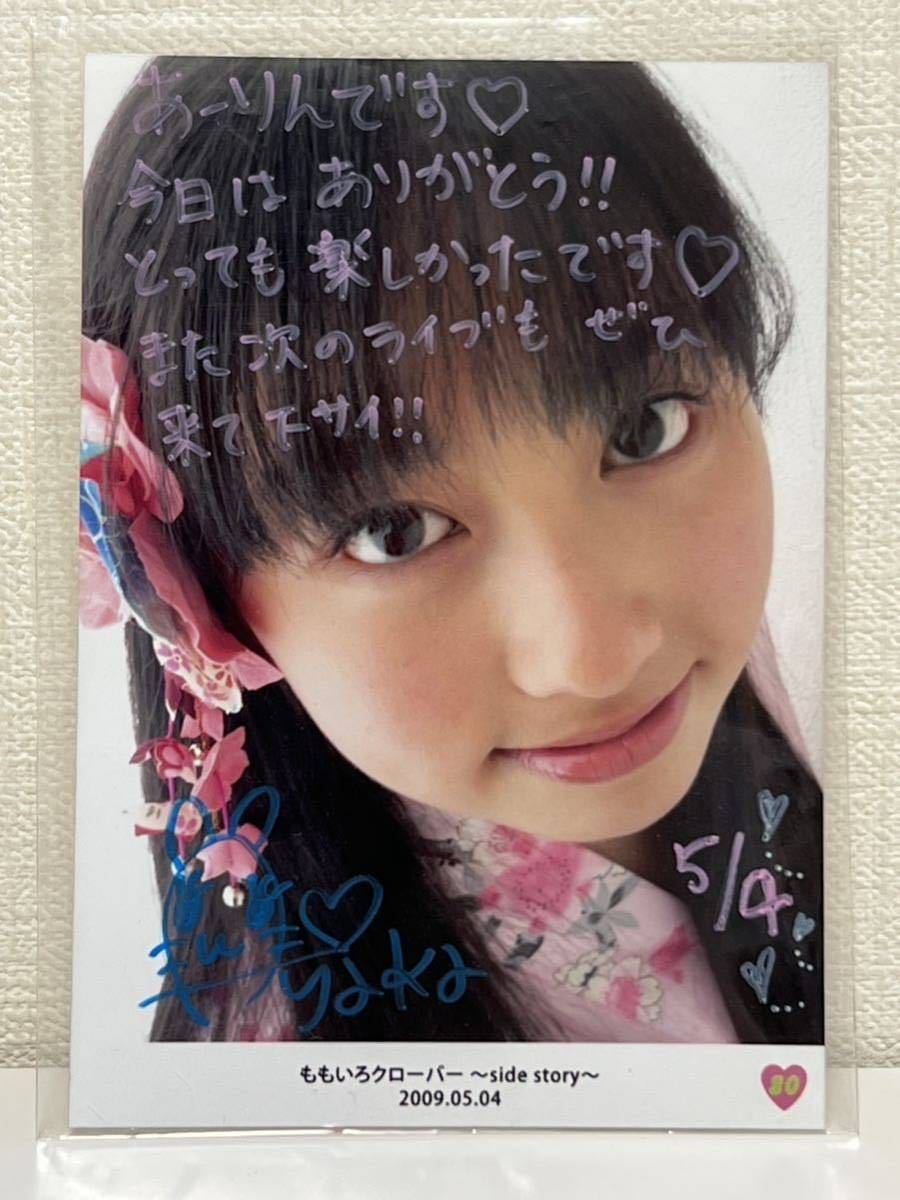 あーりんです♡
今日は ありがとう!!
とっても 楽しかったです♡
また 次のライブも ぜひ
来て下サイ!!
5/4
ももいろクローバー ～side story～
2009.05.04
80